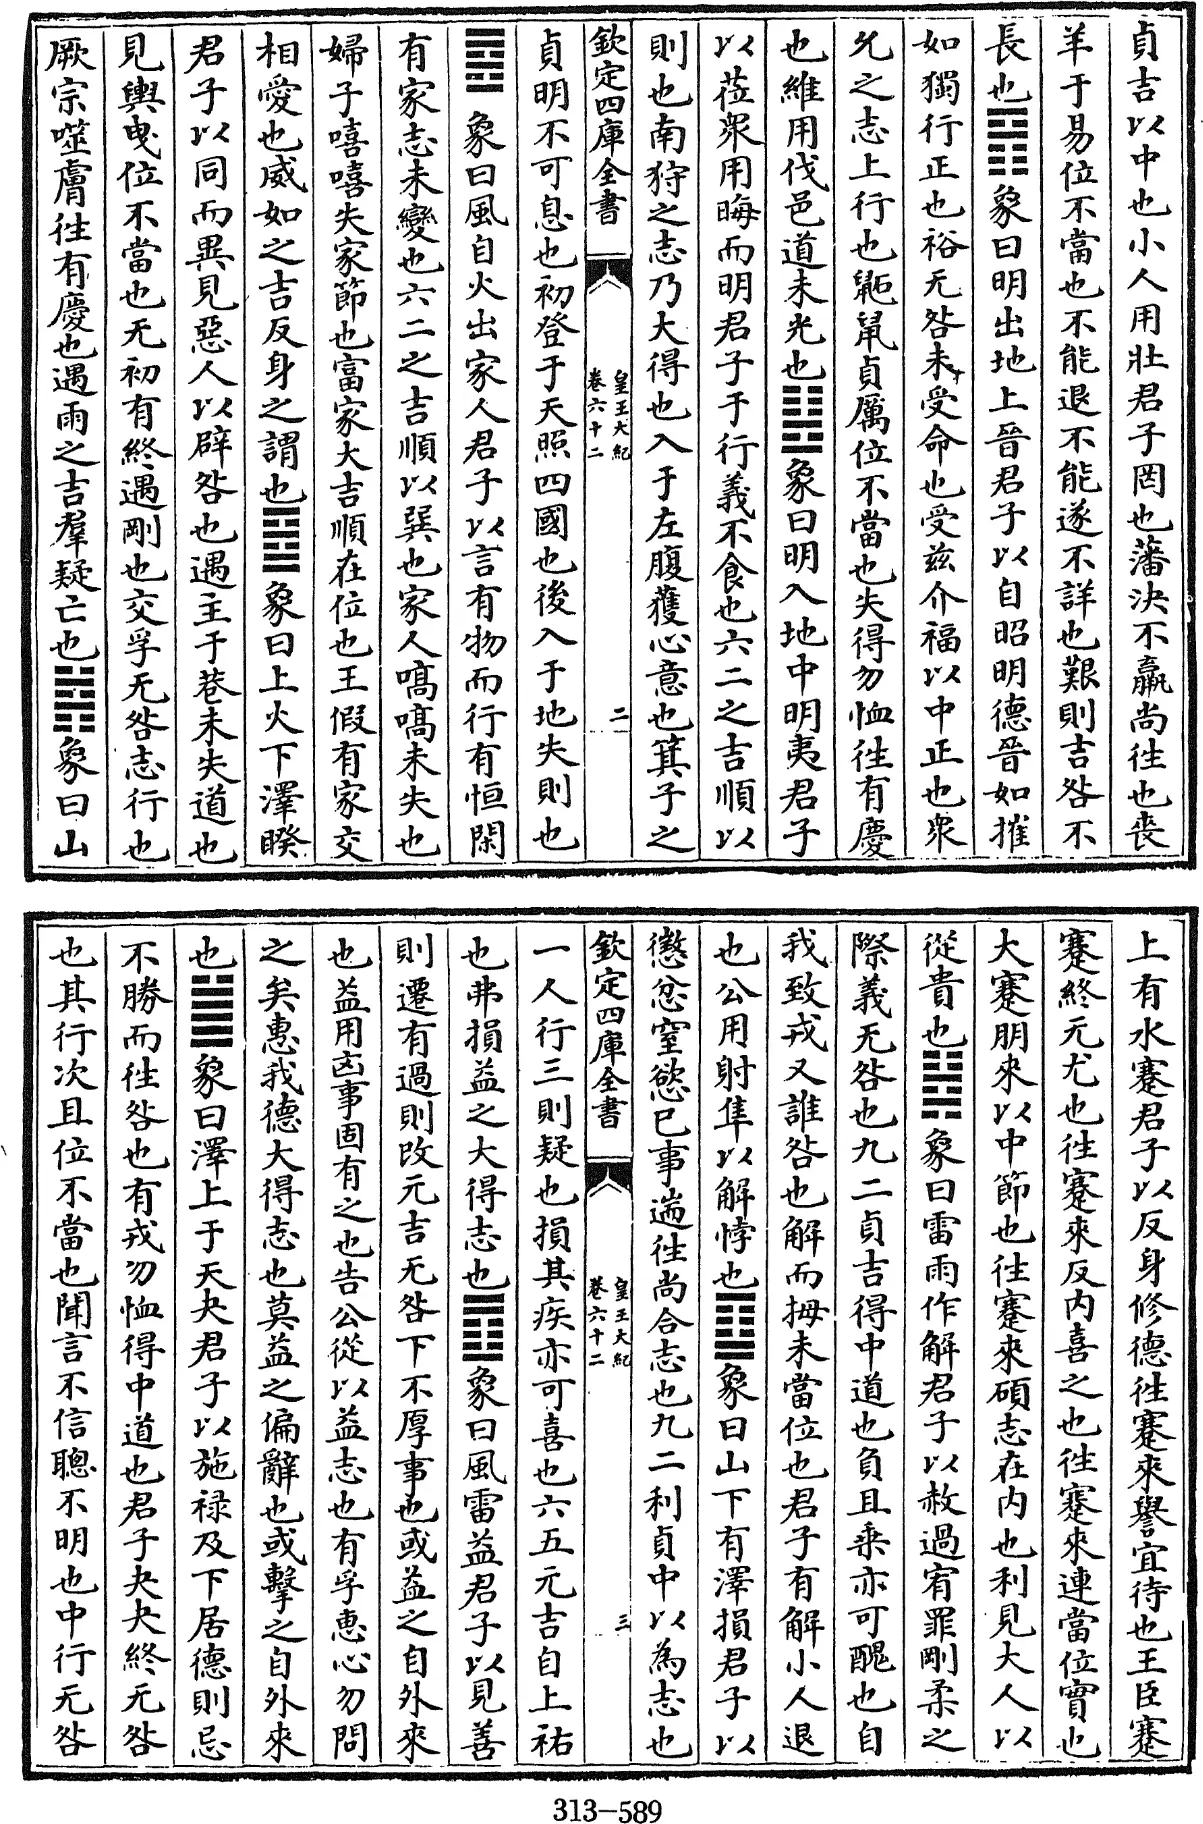 貞吉以中也小人用壯君子罔也藩決不羸尚往也喪
羊于易位不當也不能退不能遂不詳也艱則吉咎不
長也䷢象曰明出地上晉君子以自昭明德晉如摧
如獨行正也裕无咎未受命也受兹介福以中正也衆
允之志上行也鼫鼠貞厲位不當也失得勿恤往有慶
也維用伐邑道未光也䷣象曰明入地中明夷君子
以莅衆用晦而明君子于行義不食也六二之吉順以
則也南狩之志乃大得也入于左腹獲心意也箕子之
欽定四庫全書
皇王大紀
卷六十二
二
貞明不可息也初登于天照四國也後入于地失則也
䷤象曰風自火出家人君子以言有物而行有恒閑
有家志未變也六二之吉順以巽也家人嗃嗃未失也
婦子嘻嘻失家節也富家大吉順在位也王假有家交
相愛也威如之吉反身之謂也䷥象曰上火下澤睽
君子以同而異見惡人以辟咎也遇主于巷未失道也
見輿曳位不當也无初有終遇剛也交孚无咎志行也
厥宗噬膚往有慶也遇雨之吉羣疑亡也䷦象曰山
上有水蹇君子以反身修德往蹇來譽宜待也王臣蹇
蹇終无尤也往蹇來反内喜之也往蹇來連當位實也
大蹇朋來以中節也往蹇來碩志在内也利見大人以
從貴也䷧象曰雷雨作解君子以赦過宥罪剛柔之
際義无咎也九二貞吉得中道也負且乘亦可醜也自
我致戎又誰咎也解而拇未當位也君子有解小人退
也公用射隼以解悖也䷨象曰山下有澤損君子以
懲忿窒慾巳事遄往尚合志也九二利貞中以為志也
欽定四庫全書
皇王大紀
卷六十二
三
一人行三則疑也損其疾亦可喜也六五元吉自上祐
也弗損益之大得志也䷩象曰風雷益君子以見善
則遷有過則改元吉无咎下不厚事也或益之自外來
也益用凶事固有之也告公從以益志也有孚惠心勿問
之矣惠我德大得志也莫益之偏辭也或擊之自外來
也䷪象曰澤上于天夬君子以施禄及下居德則忌
不勝而往咎也有戎勿恤得中道也君子夬夬終无咎
也其行次且位不當也聞言不信聰不明也中行无咎
313-589